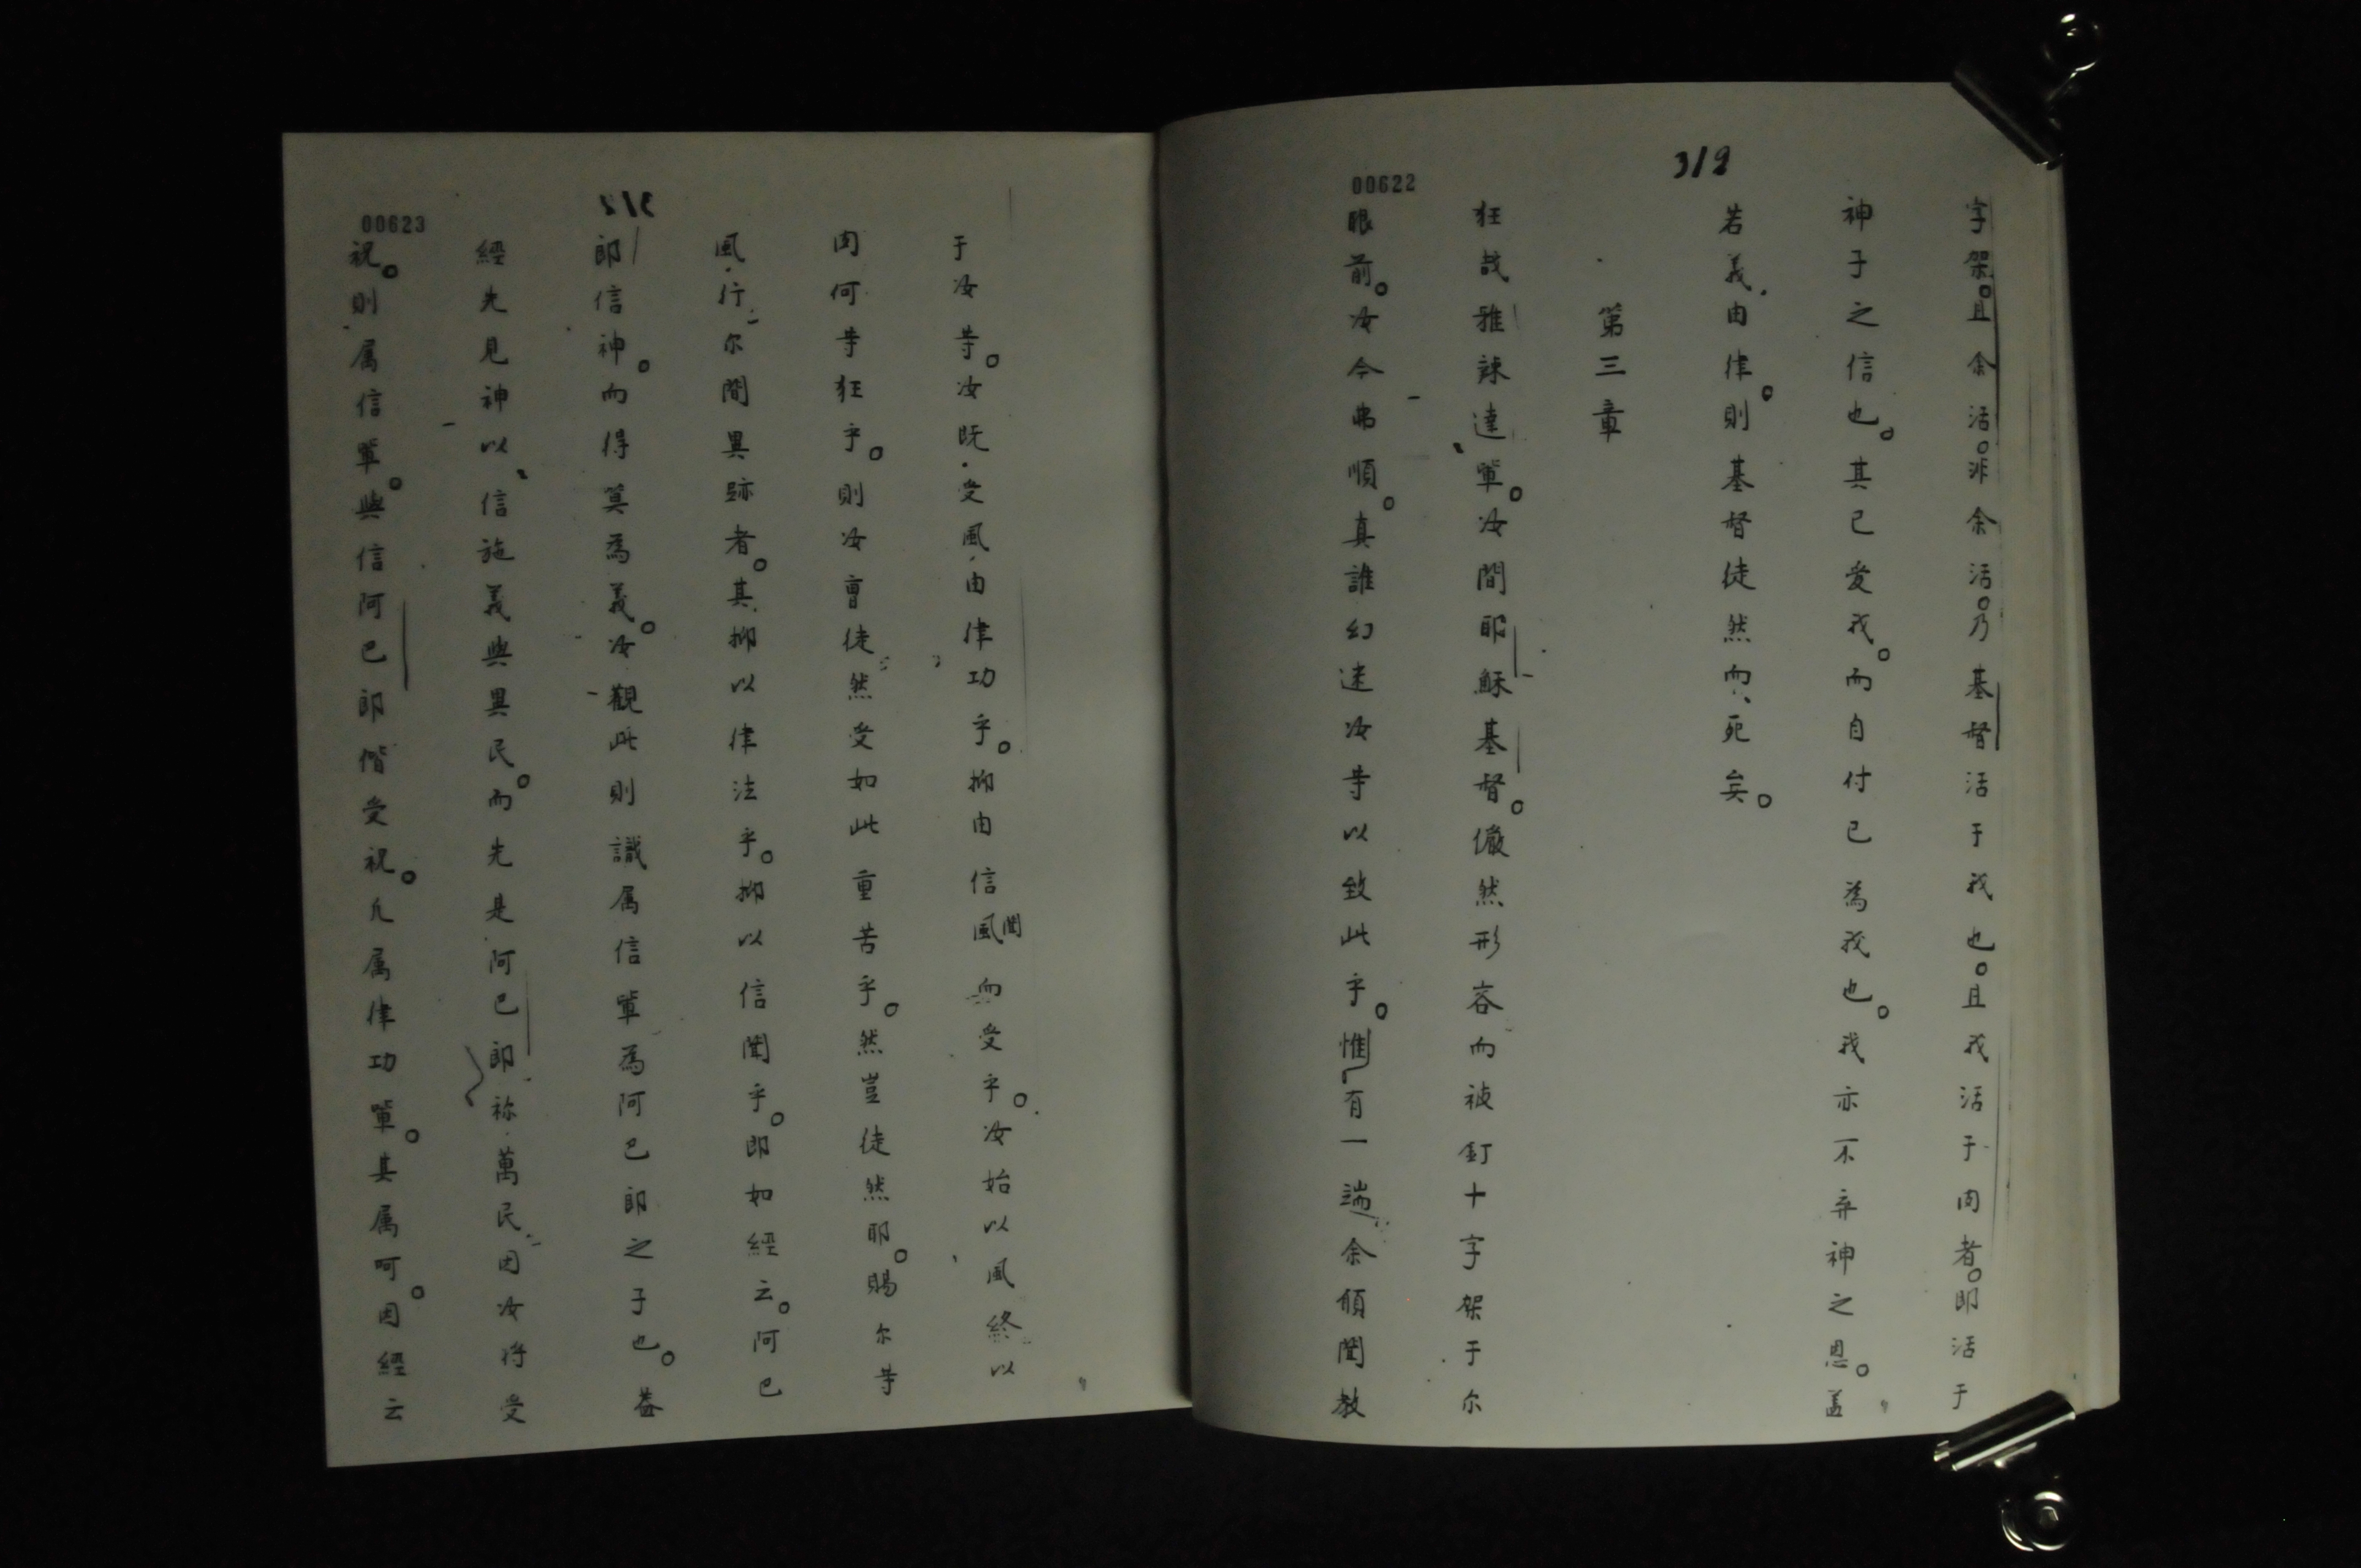 312
00622
字架。且余活。非余活。乃基督活于我也。且我活于肉者。即活于
神子之信也。其已爱我。而自付已為我也。我亦不弃神之恩。盖
若義由律。則基督徒然而死矣。
第三章
狂哉雅辣達輩。汝間耶穌基督。儼然形容而被釘十字架于尔
眼前。汝今弗順。真誰幻迷汝等以致此乎。惟有一端余願聞教
00623
于汝等。汝既受風由律功乎。抑由信風聞而受乎。汝始以風終以
肉何等狂乎。則汝曾徒然受如此重苦乎。然豈徒然耶。賜尔等
風行尔間異跡者。其抑以律法乎。抑以信聞乎。即如經云。阿巴
郎信神。而得算為義。汝觀此則識属信輩為阿巴郎之子也。盖
經先見神以信施義與異民。而先是阿巴郎祢萬民因汝将受
祝。則属信輩。與信阿巴郎偕受祝。凡属律功輩。其属呵。因經云